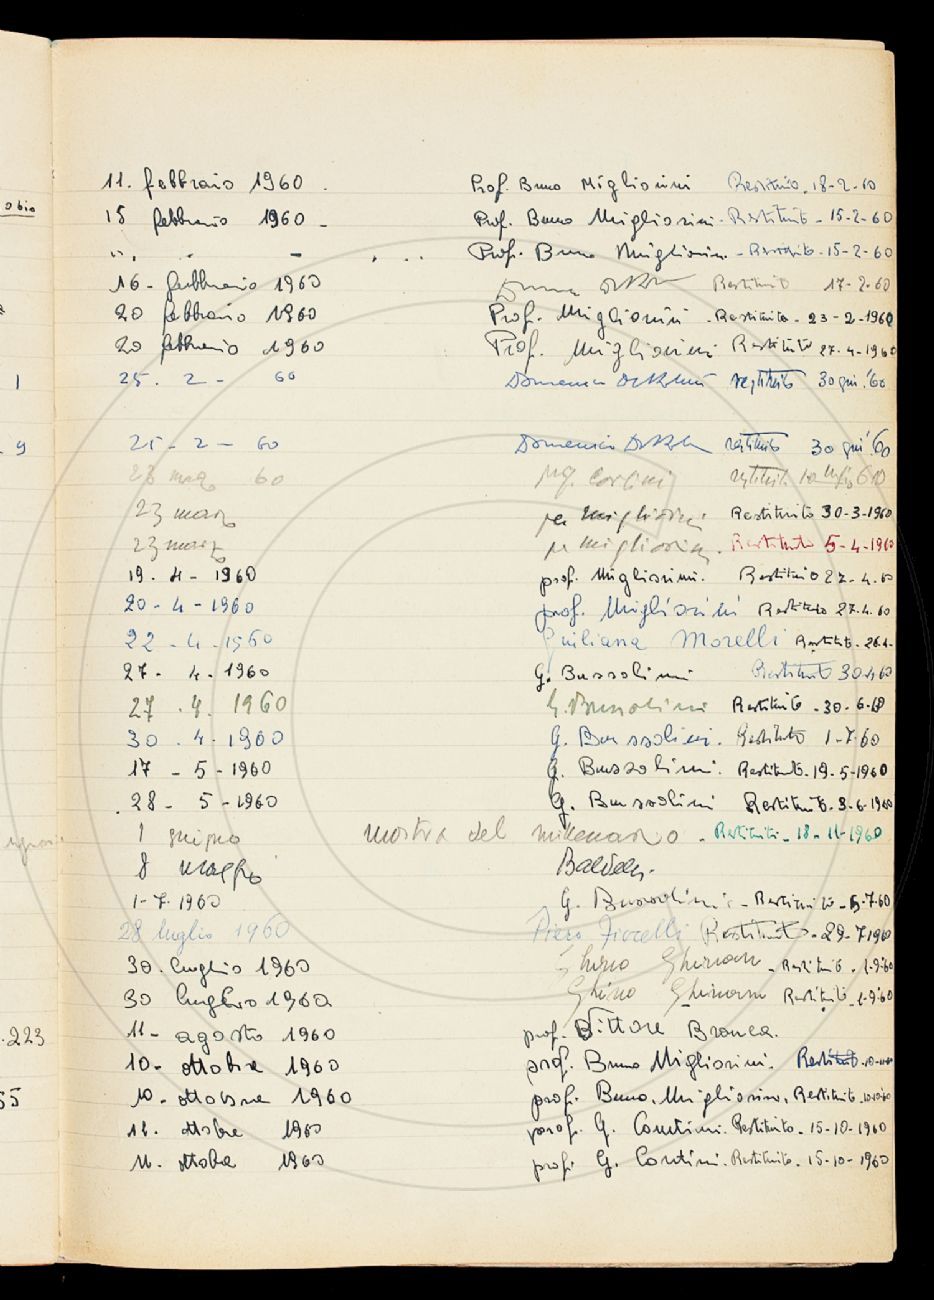 11. febbraio 1960. Prof. Bruno Migliorini Restituito. 18-2-60
obio
15 febbraio 1960 - Prof. Bruno Migliorini. Restituito - 15-2-60
" . " - Prof. Bruno Migliorini - Restituito - 15-2-60
16 - febbraio 1960 Restituito 17-2-60
20 febbraio 1960 Prof. Migliorini - Restituito - 23-2-1960
20 febbraio 1960 Prof. Migliorini Restituito 27.4-1960
1 25. 2 - 60 Domenico restituito 30 giu. '60
9 25 - 2 - 60 Domenico restituito 30 giu '60
23 marzo 60
23 marzo per Migliorini Restituito 30-3-1960
23 marzo per Migliorini. Restituito 5-4-1960
19. 4 - 1960 prof. Migliorini. Restituito 27-4.60
20 - 4 - 1960 prof. Migliorini Restituito 27.4.60
22 - 4 - 1960 Giuliana Morelli Restituito - 26.4-
27 - 4. 1960 G. Bussolini Restituito 30.4.60
27 . 4. 1960 G. Bussolini Restituito - 30-6-60
30 . 4. 1960 G. Bussolini. Restituito 1-7-60
17 - 5 - 1960 G. Bussolini. Restituito. 19.5-1960
28 - 5 - 1960 G. Bussolini Restituito. 3-6-1960
1 giugno mostra del millenario - Restituito - 18-11-1960
8 maggio
1-7-1960 G. Bussolini - Restituito - 5-7-60
28 luglio 1960 Piero Fiorelli Restituito - 29-7 1960
30. luglio 1960 Ghino Ghinassi - Restituito. 1-9-60
30 luglio 1960 Ghino Ghinassi Restituito. 1-9-60
.223 11 - agosto 1960 prof. Vittore Branca.
10 - ottobre 1960 prof. Bruno Migliorini. Restituito
55 10 - ottobre 1960 prof. Bruno Migliorini. Restituito
11. ottobre 1960 prof. G. Contini. Restituito - 15-10-1960
11. ottobre 1960 prof. G. Contini. Restituito - 15-10-1960